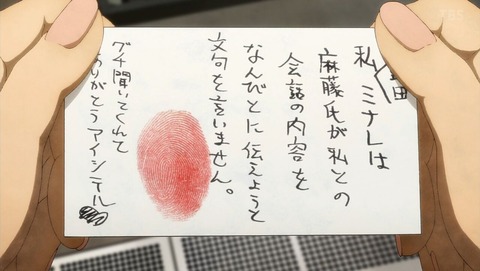 私田ミナレは
麻藤氏が私との
会話の内容を
なんびとに伝えようと
文句を言いません。
グチ聞いてくれて
ありがとうアイシテル